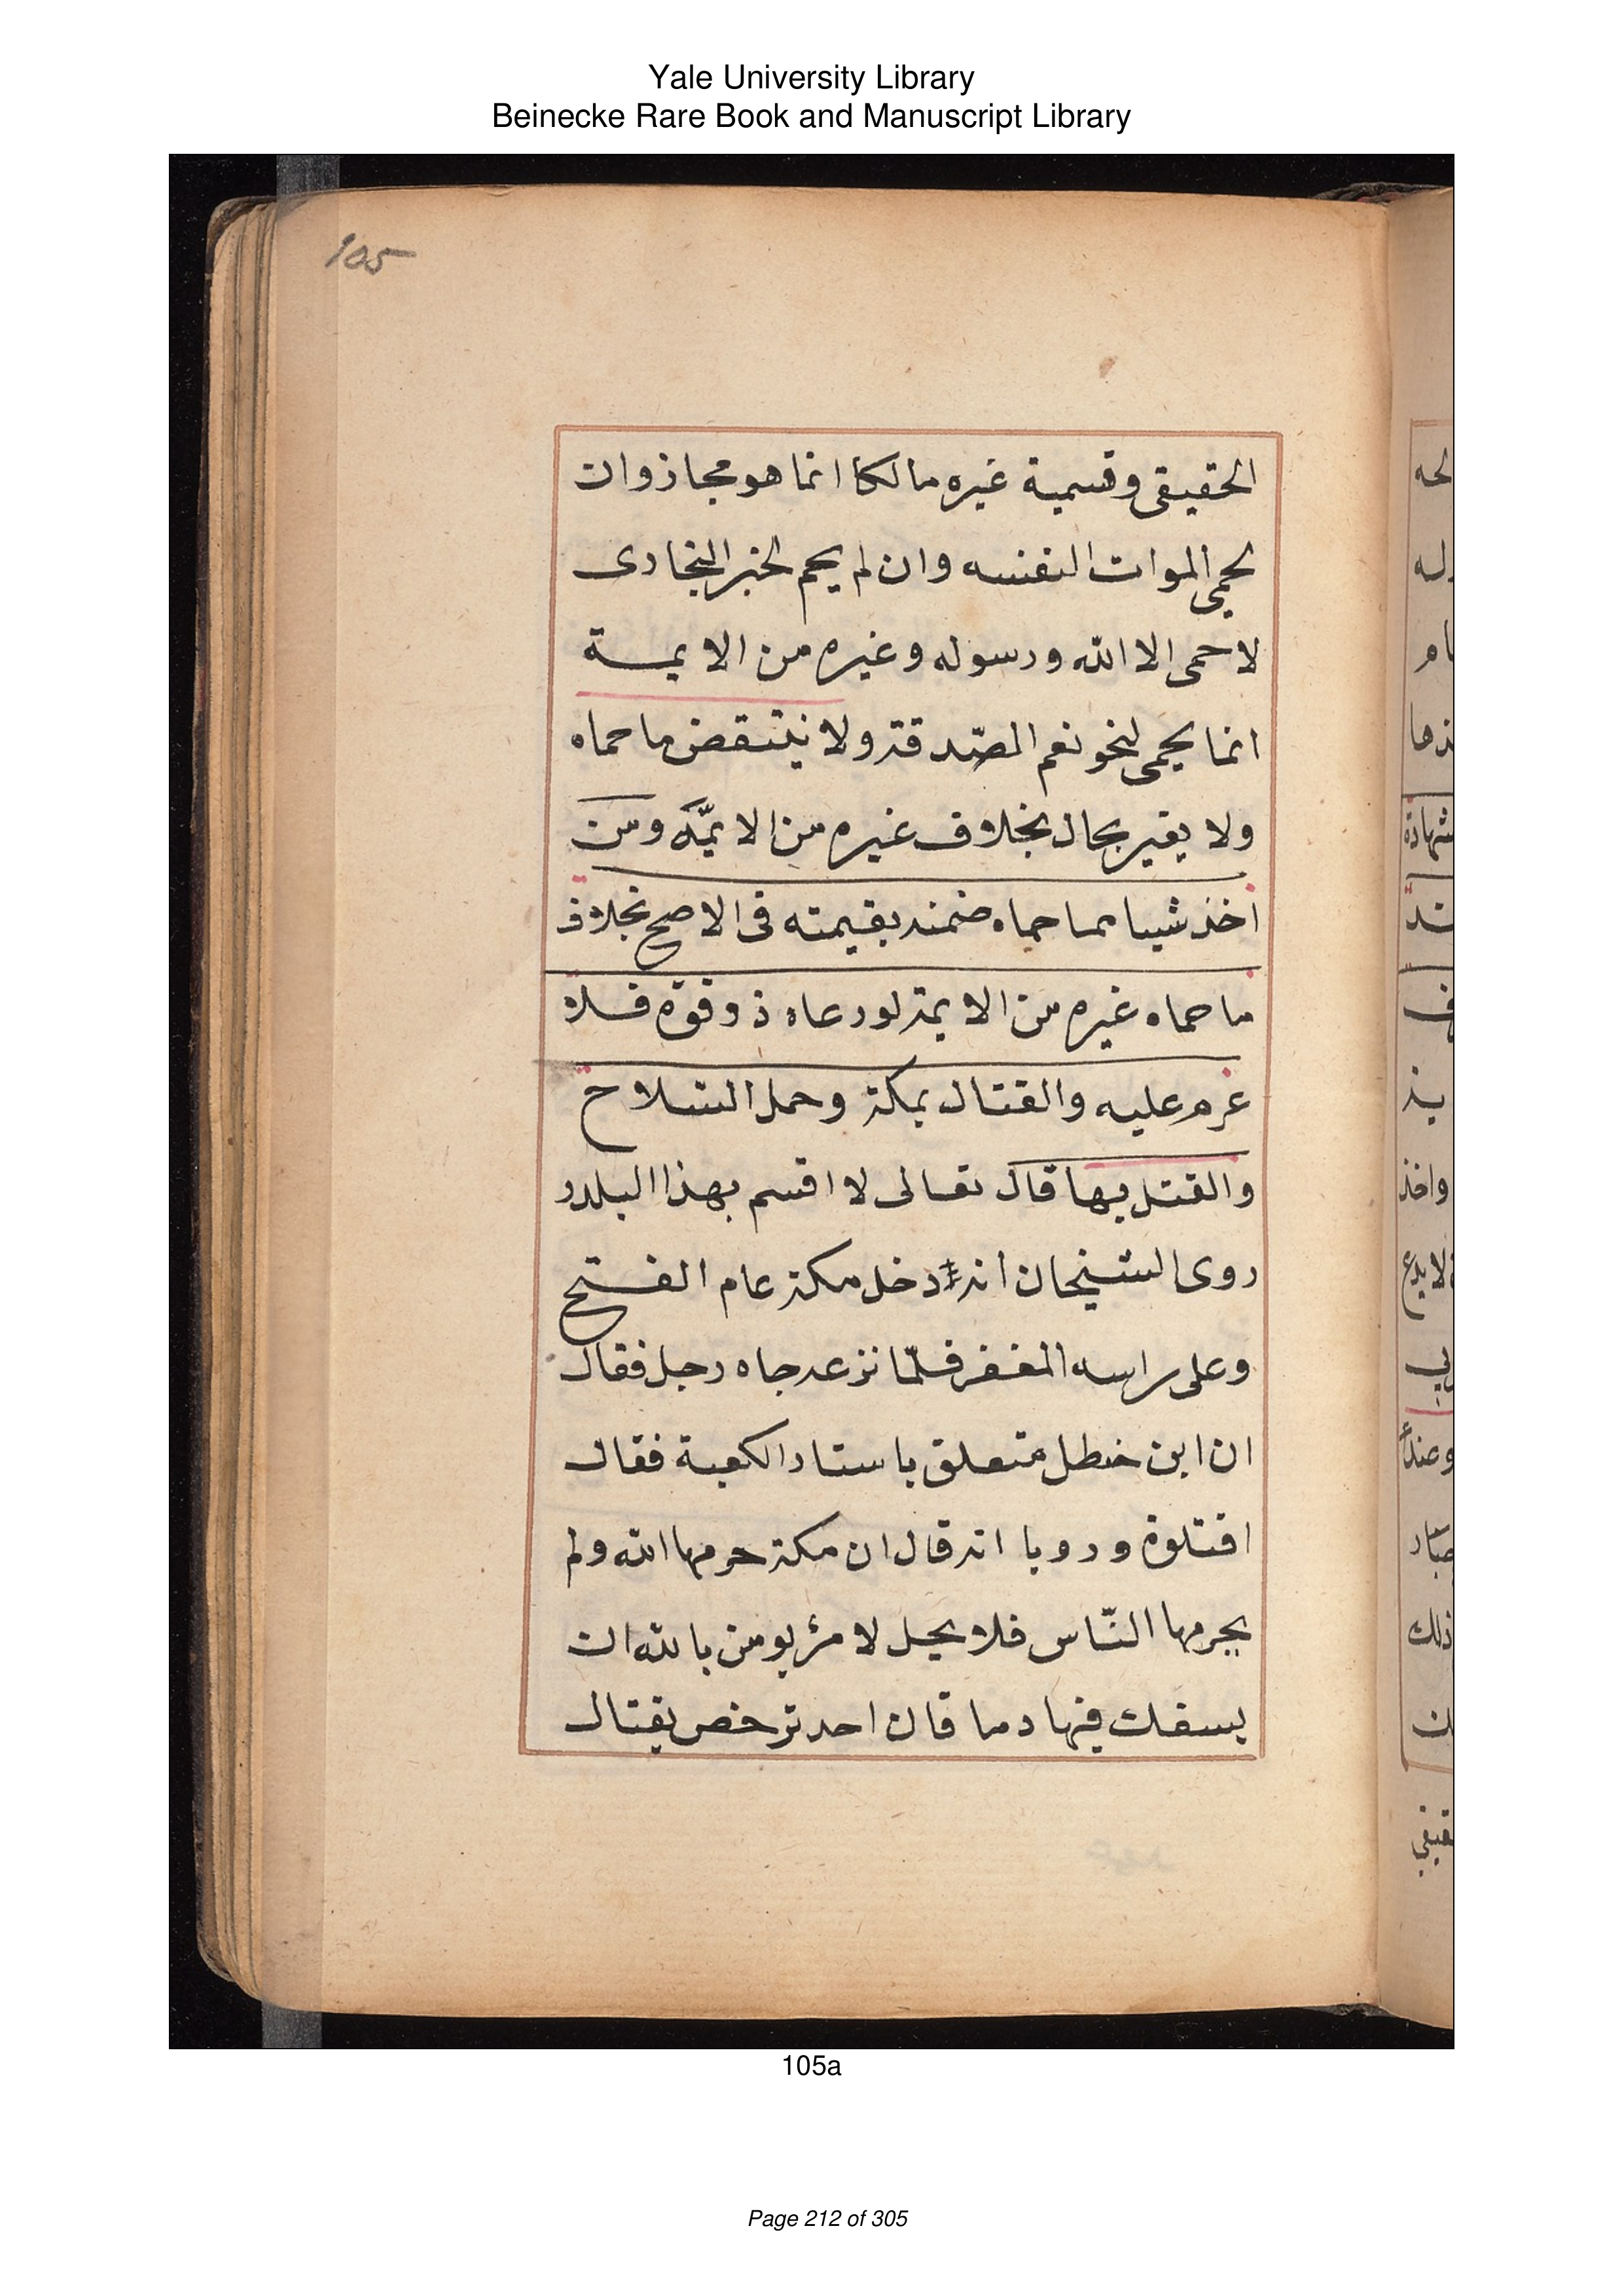 Yale University Library
Beinecke Rare Book and Manuscript Library
105
الحقيقى وقسمية غيره مالكا انما هو مجاز وان
يحمى الموات لنفسه وان لم يحم لخبر البخارى
لا حمى الا الله ورسوله وغيره من الايمة
انما يحمى لنحو نعم الصّدقة ولا ينتقض ما حماه
ولا يغير بحال بخلاف غيره من الايمّة ومن
اخذ شيا مما حماه ضمنه بقيمته فى الاصح بخلاف
ما حماه غيره من الايمة لو رعاه ذو قوة فلا
غرم عليه والقتال بمكة وحمل السلاح
والقتل بها قال تعالى لا اقسم بهذا البلد و
روى الشيخان انه دخل مكة عام الفتح
وعلى راسه المغفر فلمّا نزعه جاه رجل فقال
ان ابن خطل متعلق باستار الكعبة فقال
اقتلوه ورويا انه قال ان مكة حرمها الله ولم
يحرمها النّاس فلا يحل لامرئ يومن بالله ان
يسفك فيها دما فان احد ترخص بقتال
105a
Page 212 of 305